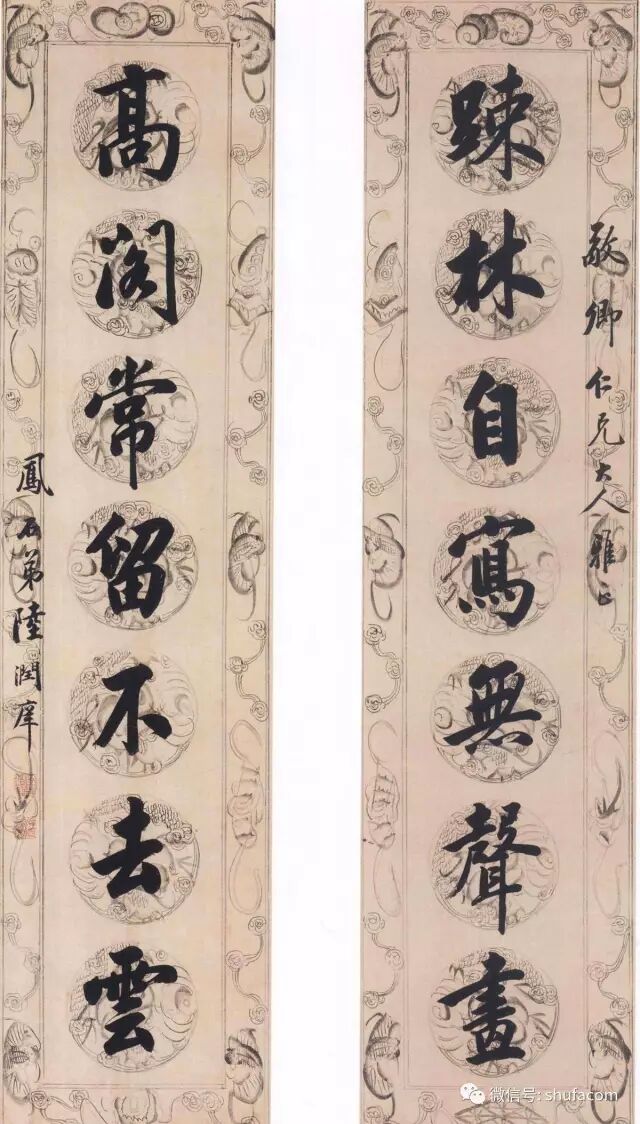 疎林自寫無聲畫
敬卿仁兄大人雅正
高閣常留不去雲
鳳石弟陸潤庠
微信号: shufacom